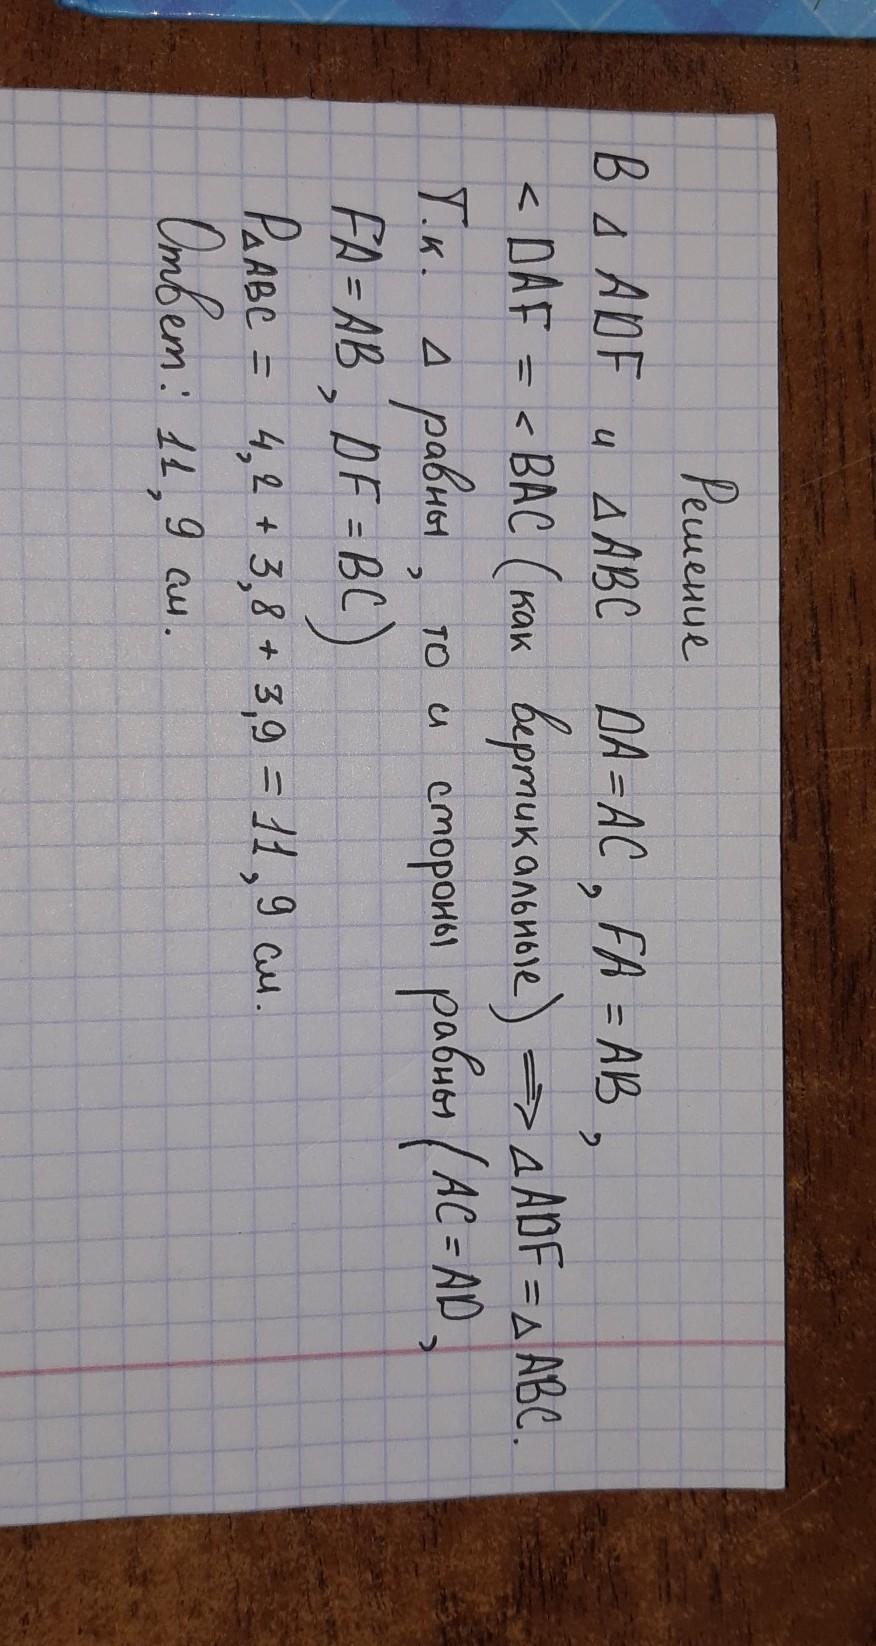 Решение
В △ ADF и △ABC DA=AC, FA=AB,
<DAF=<BAC (как вертикальные) ⟹ △ADF=△ABC.
Т.к. △ равны, то и стороны равны (AC=AD,
FA=AB, DF=BC)
P△ABC = 4,2+3,8+3,9=11,9 см.
Ответ: 11,9 см.